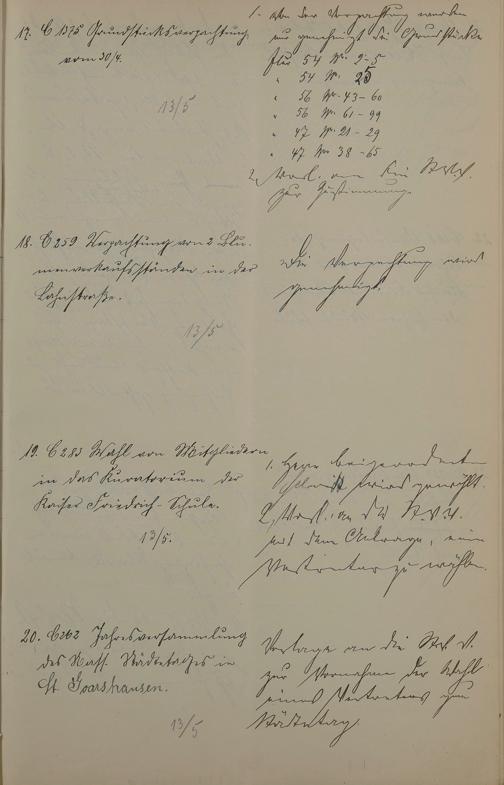 17. C 1375 Grundstücksverpachtung
vom 30/4.
13/5
1. Von der Verpachtung werden
nur genehmigt die Grundstücke
Flur 54 Nr. 2-5
" 54 Nr. 25
" 56 Nr. 43-60
" 56 Nr. 61-99
" 47 Nr. 21-29
" 47 Nr. 38-65
2, Vorl. an die St.V.V.
zur Zustimmung.
18. C 259 Verpachtung von 2 Blu-
menverkaufsständen in der
Lahnstraße.
13/5
Die Verpachtung wird
genehmigt.
19. C 283 Wahl von Mitgliedern
in das Kuratorium der
Kaiser Friedrich-Schule.
13/5.
1. Herr Beigeordneter
wird gewählt.
2, Vorl. an die St.V.V.
mit dem Antrage, einen
Vertreter zu wählen.
20. C 262 Jahresversammlung
des Nass. Städtetages in
St Goarshausen.
13/5
Vorlage an die St.V.V.
zur Vornahme der Wahl
eines Vertreters zum
Städtetag